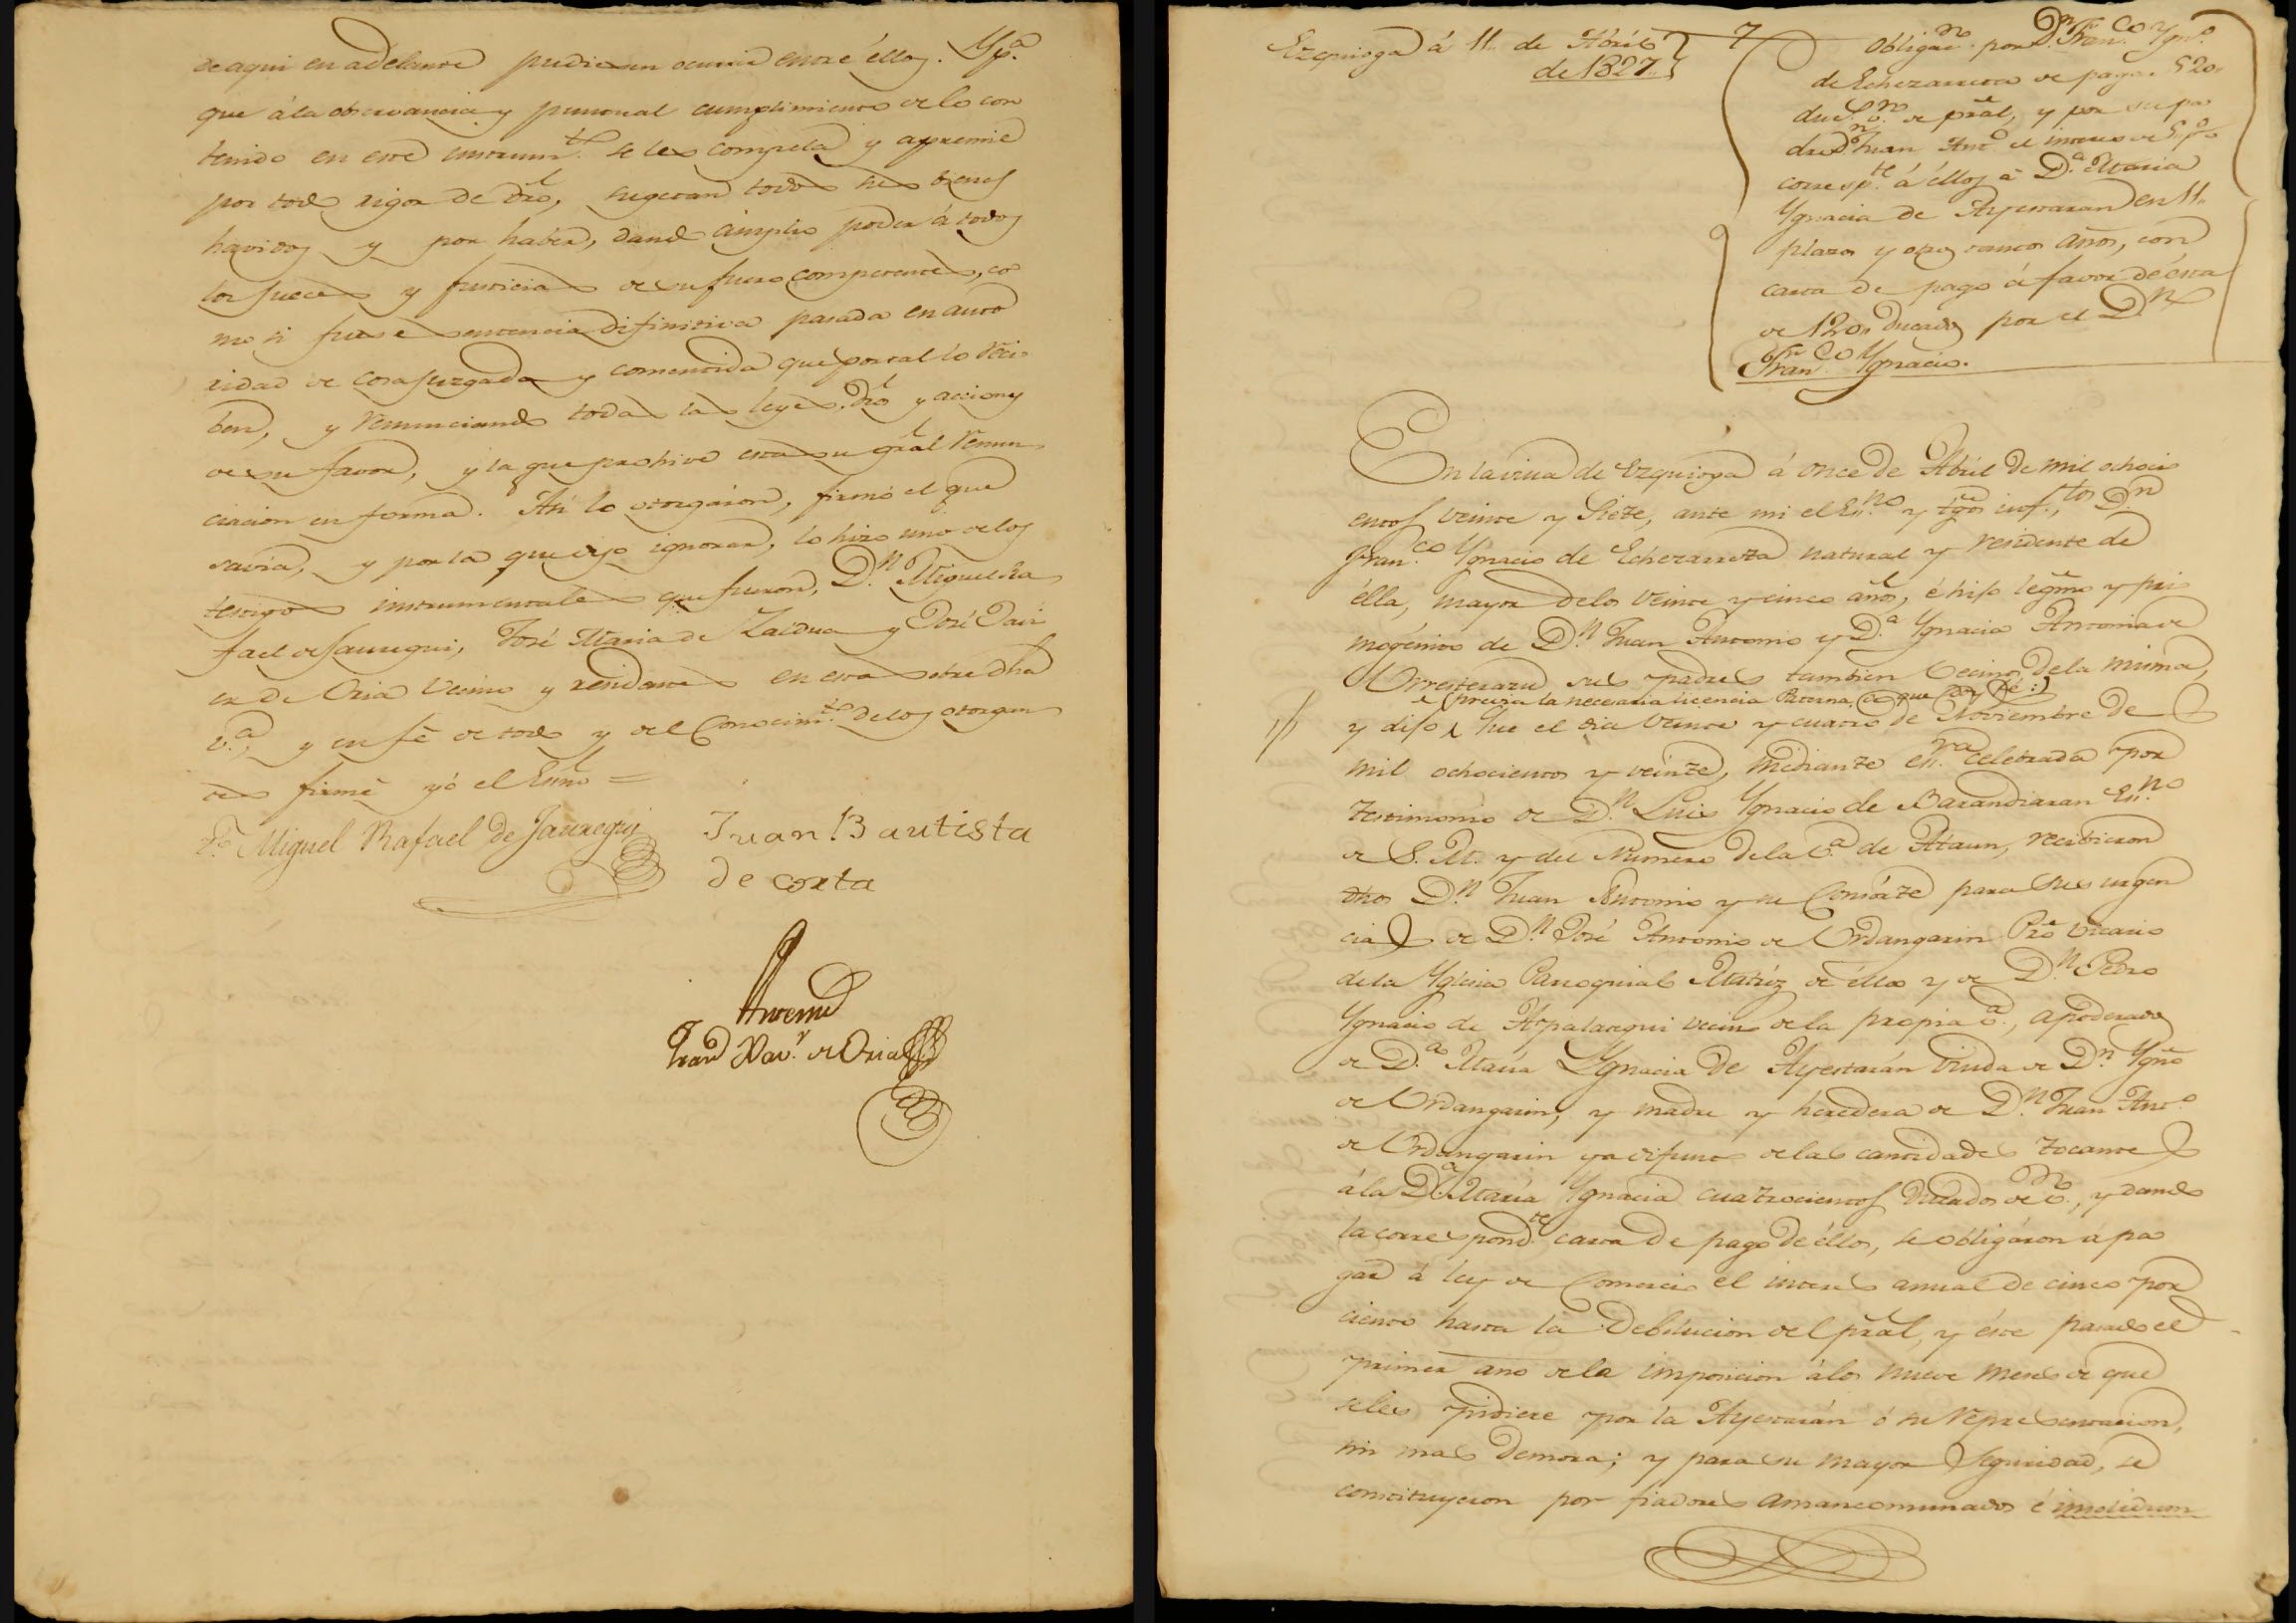 de aqui en adelante pudiesen ocurrir entre éllos. Yp.ª
que á la observancia y puntual cumplimiento de lo con
tenido en este instrum.to se les compela y apremie
por todo rigor de dro, sugetan todos sus bienes
havidos y por haber, dando amplio poder á todos
los Jueces y Justicias de su fuero competente, co
mo si fuese sentencia difinitiva pasada en auto
ridad de cosa juzgada y consentida que por tal lo reci
ben, y renunciando todas las leyes, dro y acciones
de su favor, y la que prohive esta su gral renun
ciacion en forma. Asi lo otorgaron, firmó el que
savia, y por la que dijo ignorar, lo hizo uno de los
testigos instrumentales que fueron, D.n Miguel Ra
fael de Jauregui, José Maria de Zaldua y José Xavi
er de Oria Vecinos y residentes en esta sobre dha
v.ª, y en fé de todo y del Conocim.to de los otorgan
tes firmé yó el Esnno =
T.º Miguel Rafael de Jauregui
Juan Bautista
de corta
Antemi
Fran.co Xav.r de Oria
Ezquioga á 11 de Abril
de 1827.
7
Obligac.on por D.n Fran.co Ygn.o
de Echezarreta de pagar 520
duc.s v.n de pral, y por su pa
dre D.n Juan Ant.o el interes de 5 p.%
corresp.te á éllos á D.ª Maria
Ygnacia de Ayestaran en 11
plazos y otros tantos años, con
carta de pago á favor de ésta
de 120 Ducados por el D.n
Fran.co Ygnacio.
En la villa de Ezquioga á once de Abril de mil ochoci
entos veinte y Siete, ante mi el Es.no y tgos inf.tos D.n
Fran.co Ygnacio de Echezarreta natural y residente de
élla, mayor de los veinte y cinco años, é hijo legmo y pri
mogénito de D.n Juan Antonio y D.ª Ygnacia Antonia de
Urresterazu sus padres tambien Vecinos de la misma,
(previa la necesaria licencia Paterna, de que doy fé:)
y dijo Que el dia veinte y cuatro de Noviembre de
mil ochocientos y veinte, mediante es.ra celebrada por
testimonio de D.n Luis Ygnacio de Barandiaran Es.no
de S. M. y del Numero de la v.ª de Ataun, recibieron
dhos D.n Juan Antonio y su Consorte para sus urgen
cias de D.n José Antonio de Urdangarin Pro Vicario
de la Yglesia Parroquial Matriz de élla y de D.n Pedro
Ygnacio de Apalategui vecino de la propia v.ª, apoderados
de D.ª Maria Ygnacia de Ayestarán Viuda de D.n Ygno
de Urdangarin, y madre y heredera de D.n Juan Ant.o
de Urdangarin ya difunto de las cantidades tocantes
á la D.ª Maria Ygnacia cuatrocientos Ducados de v.on, y dando
la correspond.te carta de pago de éllos, se obligáron á pa
gar á ley de Comercio el interes anual de cinco por
ciento hasta la Debolucion del pral, y éste pasado el
primer año de la imposicion á los nueve meses de que
se les pidiere por la Ayestarán ó su Representacion,
sin mas Demora; y para su mayor Seguridad, se
constituyeron por fiadores amancomunados é insolidum